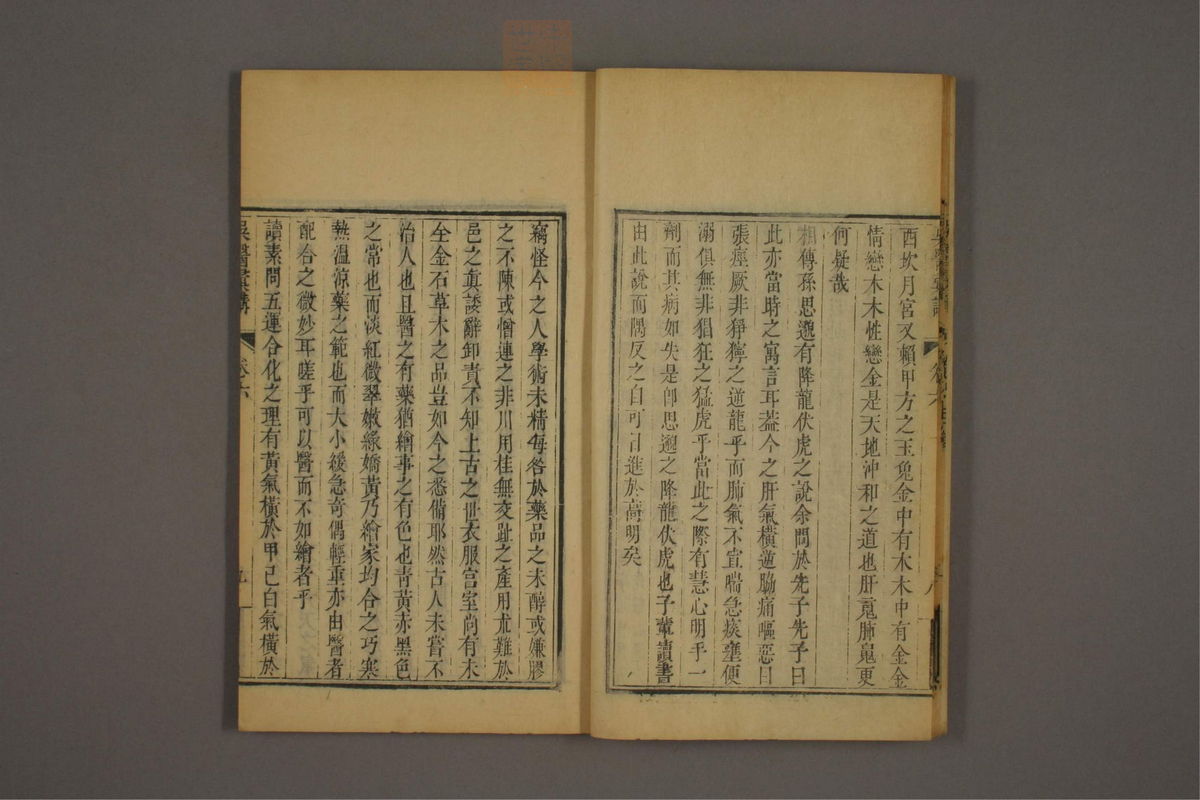 酉坎月宮又賴甲方之玉兔金中有木木中有金金
情戀木木性戀金是天地沖和之道也肝䰟肺䰠更
何疑哉
相傳孫思邈有降龍伏虎之說余問於先子先子曰
此亦當時之寓言耳葢今之肝氣橫逆脇痛嘔惡目
張痙厥非猙獰之逆龍乎而肺氣不宣喘急痰壅便
溺俱無非猖狂之猛虎乎當此之際有慧心明手一
劑而其病如失是卽思邈之降龍伏虎也子輩讀書
由此說而隅反之自可日進於高明矣
竊怪今之人學術未精每咎於藥品之未醇或嫌膠
之不陳或憎連之非川用桂無交趾之產用朮難於
邑之眞諉辭卸責不知上古之世衣服宮室尚有未
全金石草木之品豈如今之悉備耶然古人未嘗不
治人也且醫之有藥猶繪事之有色也靑黃赤黑色
之常也而淡紅微翠嫩綠嬌黃乃繪家均合之巧寒
熱溫涼藥之範也而大小緩急奇偶輕重亦由醫者
配合之微妙耳嗟乎可以醫而不如繪者乎
讀素問五運合化之理有黃氣橫於甲己白氣橫於
吳醫彙講
卷六
九